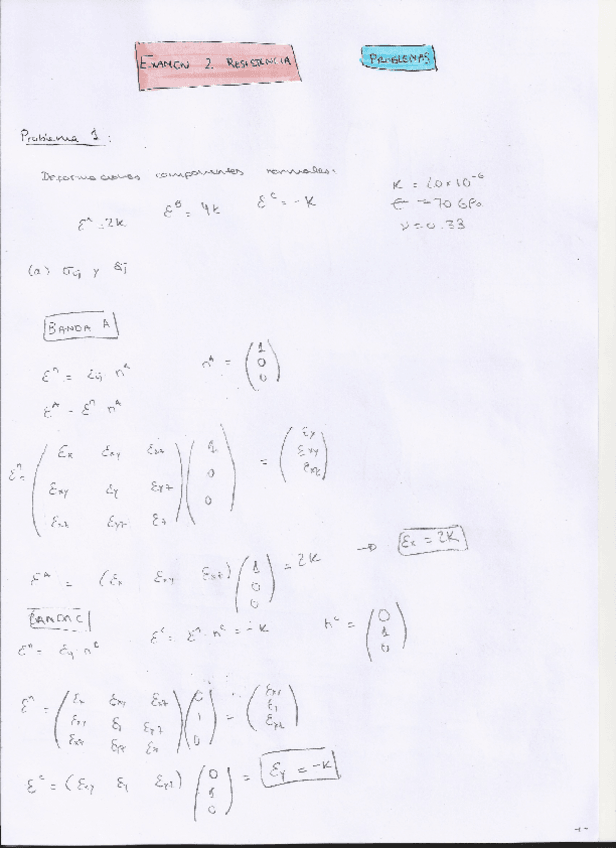 EXAMEN 2 RESISTENCIA
PROBLEMAS
Problema 1:
Deformaciones componentes normales:
εᴬ = 2K εᴮ = 4K εᶜ = -K
K = 20×10⁻⁶
E = 70 GPa
ν = 0.33
(a) σij y
BANDA A
εⁿ = εij nᴬ nᴬ = (1 0 0)
εᴬ = εⁿ nᴬ
εⁿ = (εx εxy εxz
εxy εy εyz
εxz εyz εz) (1 0 0) = (εx εxy εxz)
εᴬ = (εx εxy εxz) (1 0 0) = 2K → εx = 2K
BANDA C
εⁿ = εij nᶜ εᶜ = εⁿ nᶜ = -K nᶜ = (0 1 0)
εⁿ = (εx εxy εxz
εxy εy εyz
εxz εyz εz) (0 1 0) = (εxy εy εyz)
εᶜ = (εxy εy εyz) (0 1 0) = εy = -K